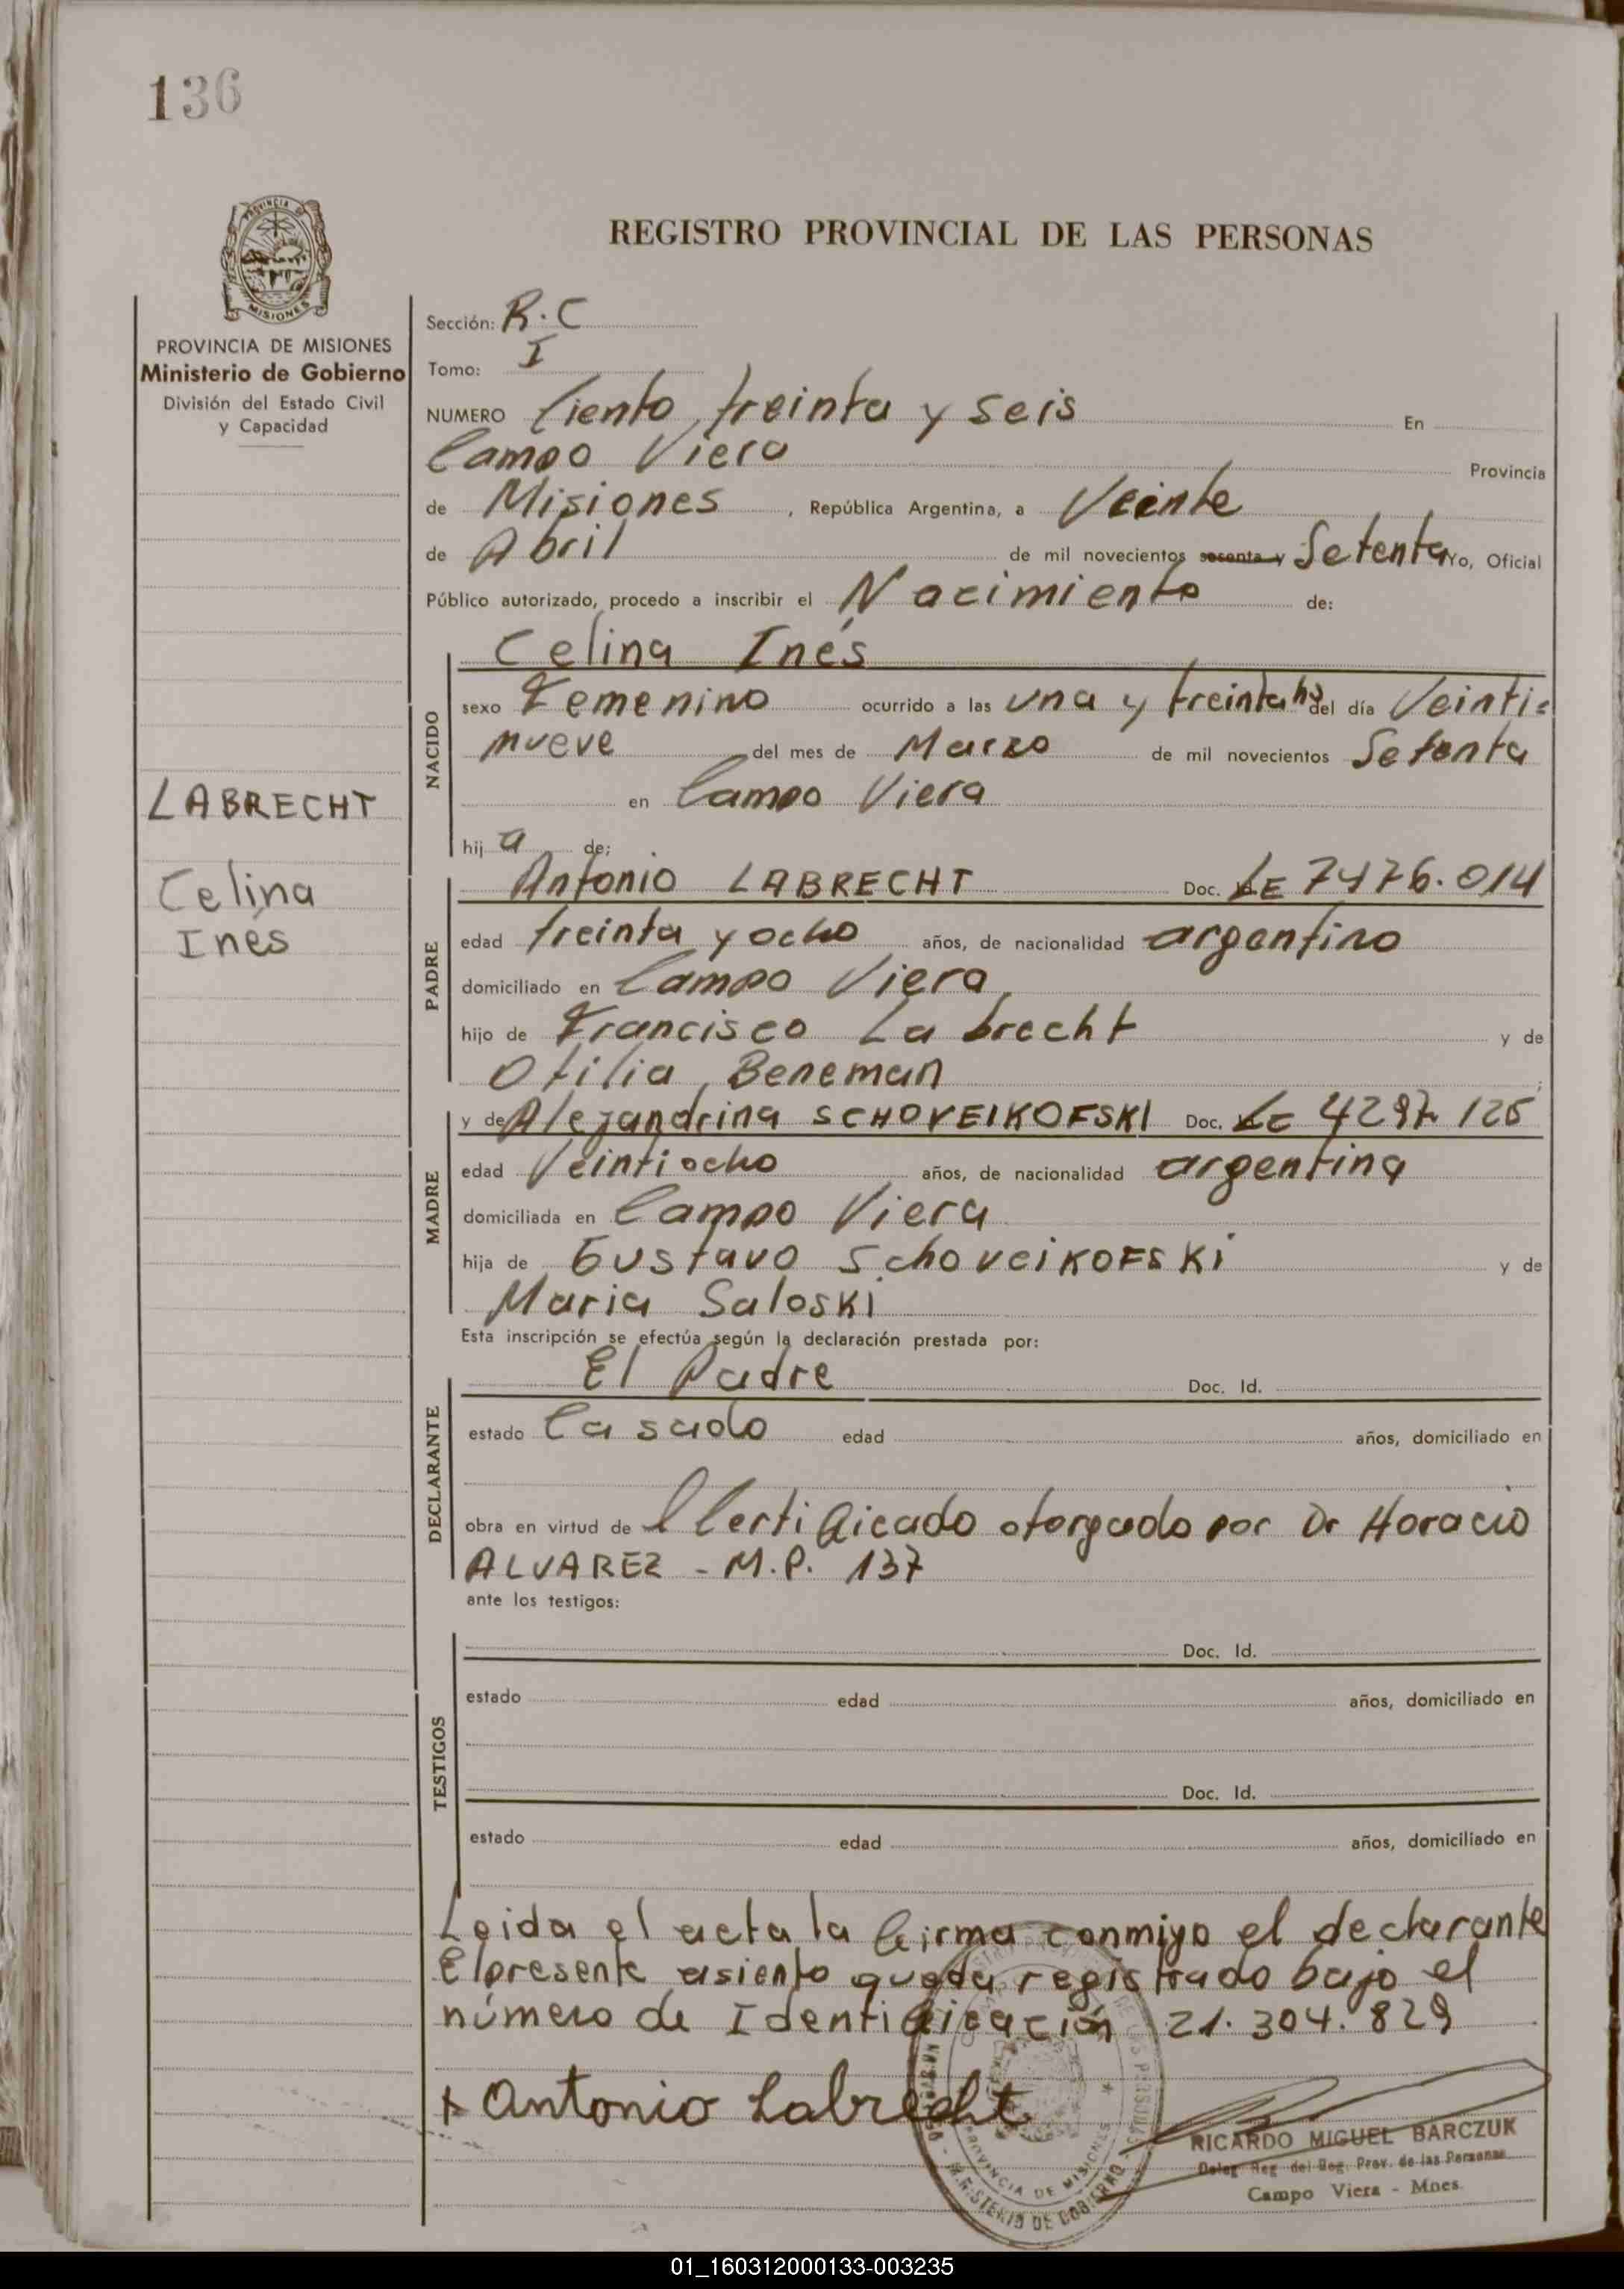 136
PROVINCIA DE MISIONES
REGISTRO PROVINCIAL DE LAS PERSONAS
PROVINCIA DE MISIONES
Ministerio de Gobierno
División del Estado Civil
y Capacidad
LABRECHT
Celina
Inés
Sección: R.C
Tomo: I
NUMERO Ciento treinta y seis En
Campo Viera Provincia
de Misiones, República Argentina, a Veinte
de Abril de mil novecientos sesenta y Setenta Yo, Oficial
Público autorizado, procedo a inscribir el Nacimiento de:
NACIDO
Celina Inés
sexo Femenino ocurrido a las una y treinta hs del día Veinti=
nueve del mes de Marzo de mil novecientos Setenta
en Campo Viera
hij a de:
PADRE
Antonio LABRECHT Doc. LE 7476.014
edad treinta y ocho años, de nacionalidad argentino
domiciliado en Campo Viera
hijo de Francisco Labrecht y de
Otilia Beneman ;
MADRE
y de Alejandrina SCHOVEIKOFSKI Doc. LC 4297.125
edad Veintiocho años, de nacionalidad argentina
domiciliada en Campo Viera
hija de Gustavo SchoveikoFski y de
Maria Saloski
Esta inscripción se efectúa según la declaración prestada por:
DECLARANTE
El Padre Doc. Id.
estado Casado edad años, domiciliado en
obra en virtud de l Certificado otorgado por Dr Horacio
ALVAREZ - M.P. 137
ante los testigos:
TESTIGOS
Doc. Id.
estado edad años, domiciliado en
Doc. Id.
estado edad años, domiciliado en
Leida el acta la firma conmigo el declarante
El presente asiento queda registrado bajo el
número de Identificación 21.304.829
Antonio Labrecht
PROVINCIA DE MISIONES
MINISTERIO DE GOBIERNO
RICARDO MIGUEL BARCZUK
Deleg. Reg. del Reg. Prov. de las Personas
Campo Viera - Mnes.
01_160312000133-003235